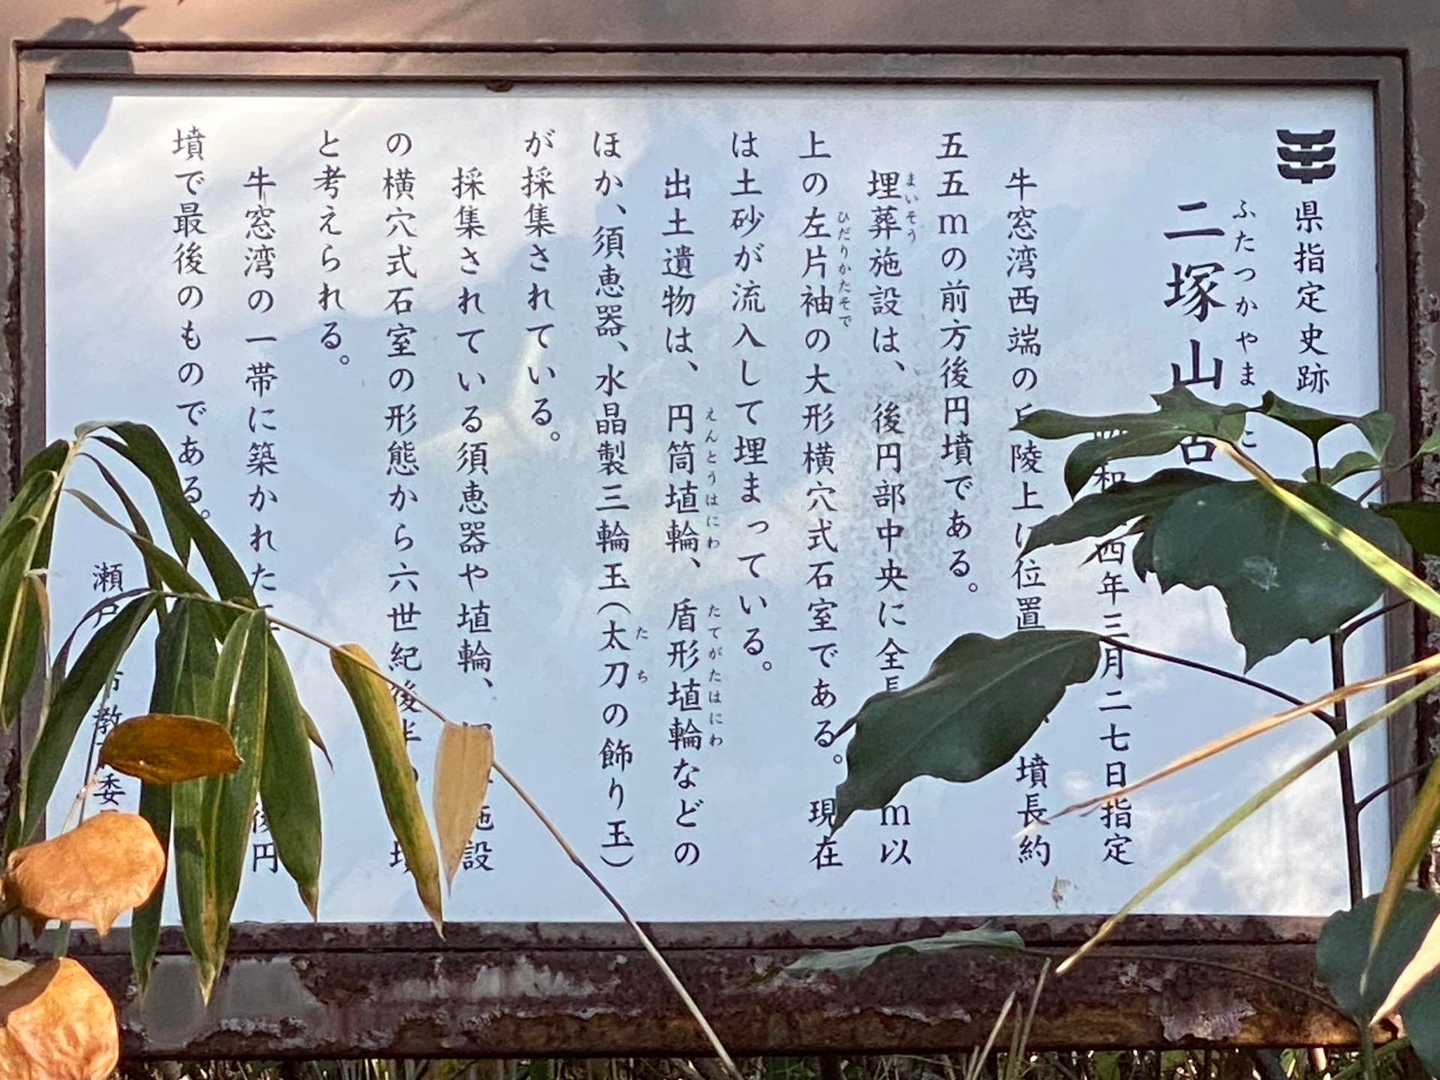 県指定史跡
ふたつかやま こ
二塚山古
和 四年三月二七日指定
牛窓湾西端の丘陵上に位置 、墳長約
五五mの前方後円墳である。
まいそう
埋葬施設は、後円部中央に全長 m以
ひだりかたそで
上の左片袖の大形横穴式石室である。現在
は土砂が流入して埋まっている。
えんとうはにわ たてがたはにわ
出土遺物は、円筒埴輪、盾形埴輪などの
たち
ほか、須恵器、水晶製三輪玉（太刀の飾り玉）
が採集されている。
採集されている須恵器や埴輪、 施設
の横穴式石室の形態から六世紀後半
と考えられる。
牛窓湾の一帯に築かれた 後円
墳で最後のものである。
瀬戸 市教 委